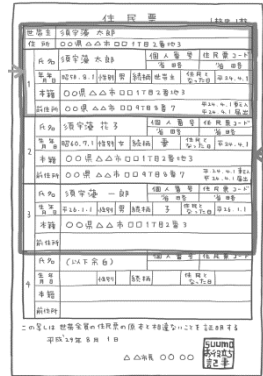 住民票
世帯主 須字藻 太郎
住所 〇〇県△△市□□1丁目2番地3
1 氏名 須字藻 太郎 個人番号 省略 住民票コード 省略
生年月日 昭58.8.1 性別 男 続柄 世帯主 住民となった日 平24.4.1
本籍 〇〇県△△市□□1丁目2番地3
前住所 〇〇県△△市□□9丁目8番7 平24.4.1転入
平24.4.1届出
2 氏名 須字藻 花子 個人番号 省略 住民票コード 省略
生年月日 昭60.7.1 性別 女 続柄 妻 住民となった日 平24.4.1
本籍 〇〇県△△市□□1丁目2番地3
前住所 〇〇県△△市□□9丁目8番7 平24.4.1転入
平24.4.1届出
3 氏名 須字藻 一郎 個人番号 省略 住民票コード 省略
生年月日 平26.1.1 性別 男 続柄 子 住民となった日 平26.1.1
本籍 〇〇県△△市□□1丁目2番3
前住所
4 氏名 (以下余白) 個人番号 住民票コード
生年月日 性別 続柄 住民となった日
本籍
前住所
この写しは世帯全員の住民票の原本と相違ないことを証明する
平成29年8月1日
△△市長 〇〇 〇〇
suumo